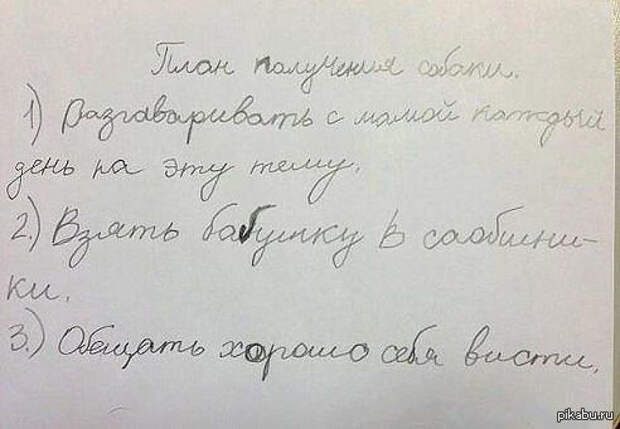 План получения собаки.
1) Разгаваривать с мамой каждый
день на эту тему.
2.) Взять бабушку в саобшни-
ки.
3.) Обещать хорошо себя висти.
pikabu.ru